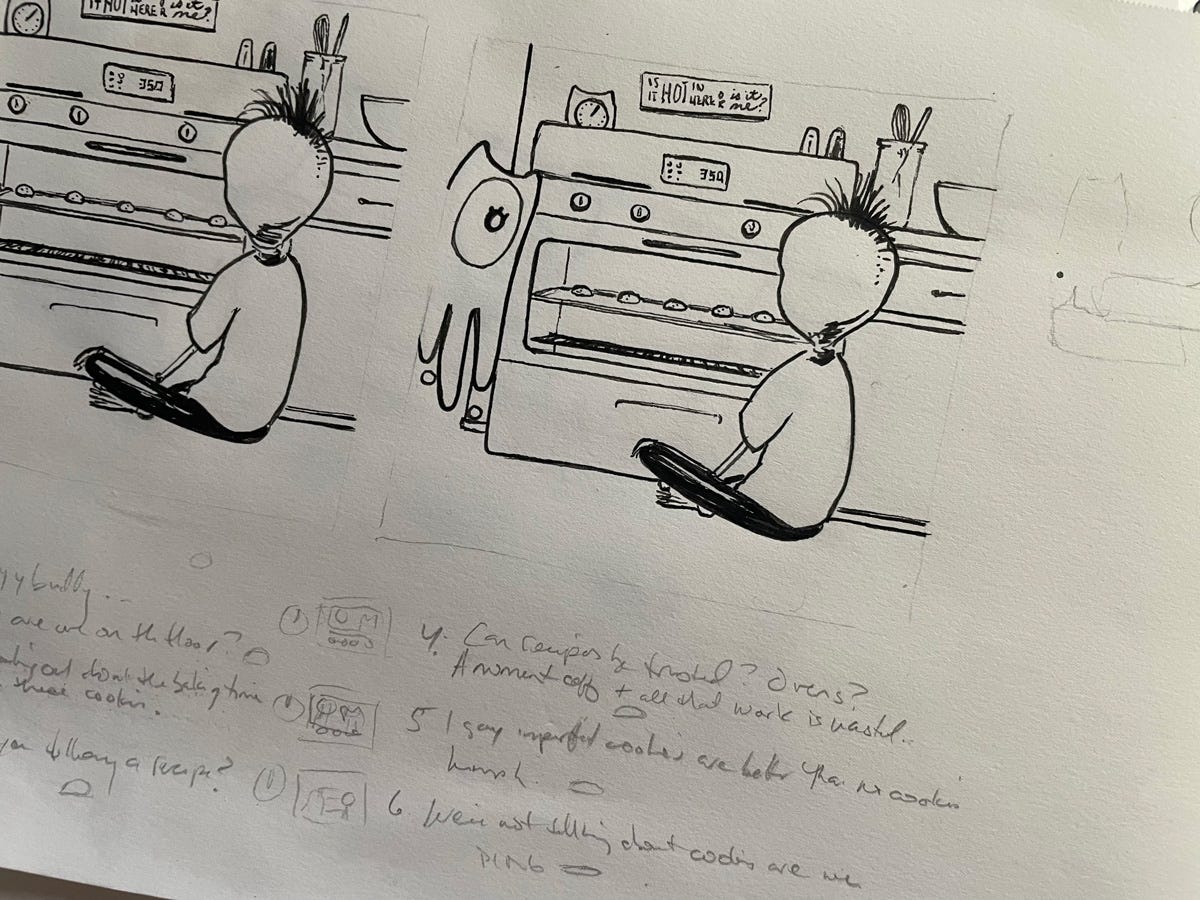 IT HOT IN HERE OR is it me?
350
IS IT HOT IN HERE OR is it me?
350
buddy...
are we on the floor?
out about the baking time
these cookies.
you following a recipe?
4. Can recipes be trusted? Ovens?
A moment off + all that work is wasted..
5 I say imperfect cookies are better than no cookies
6. We're not talking about cookies are we
PING